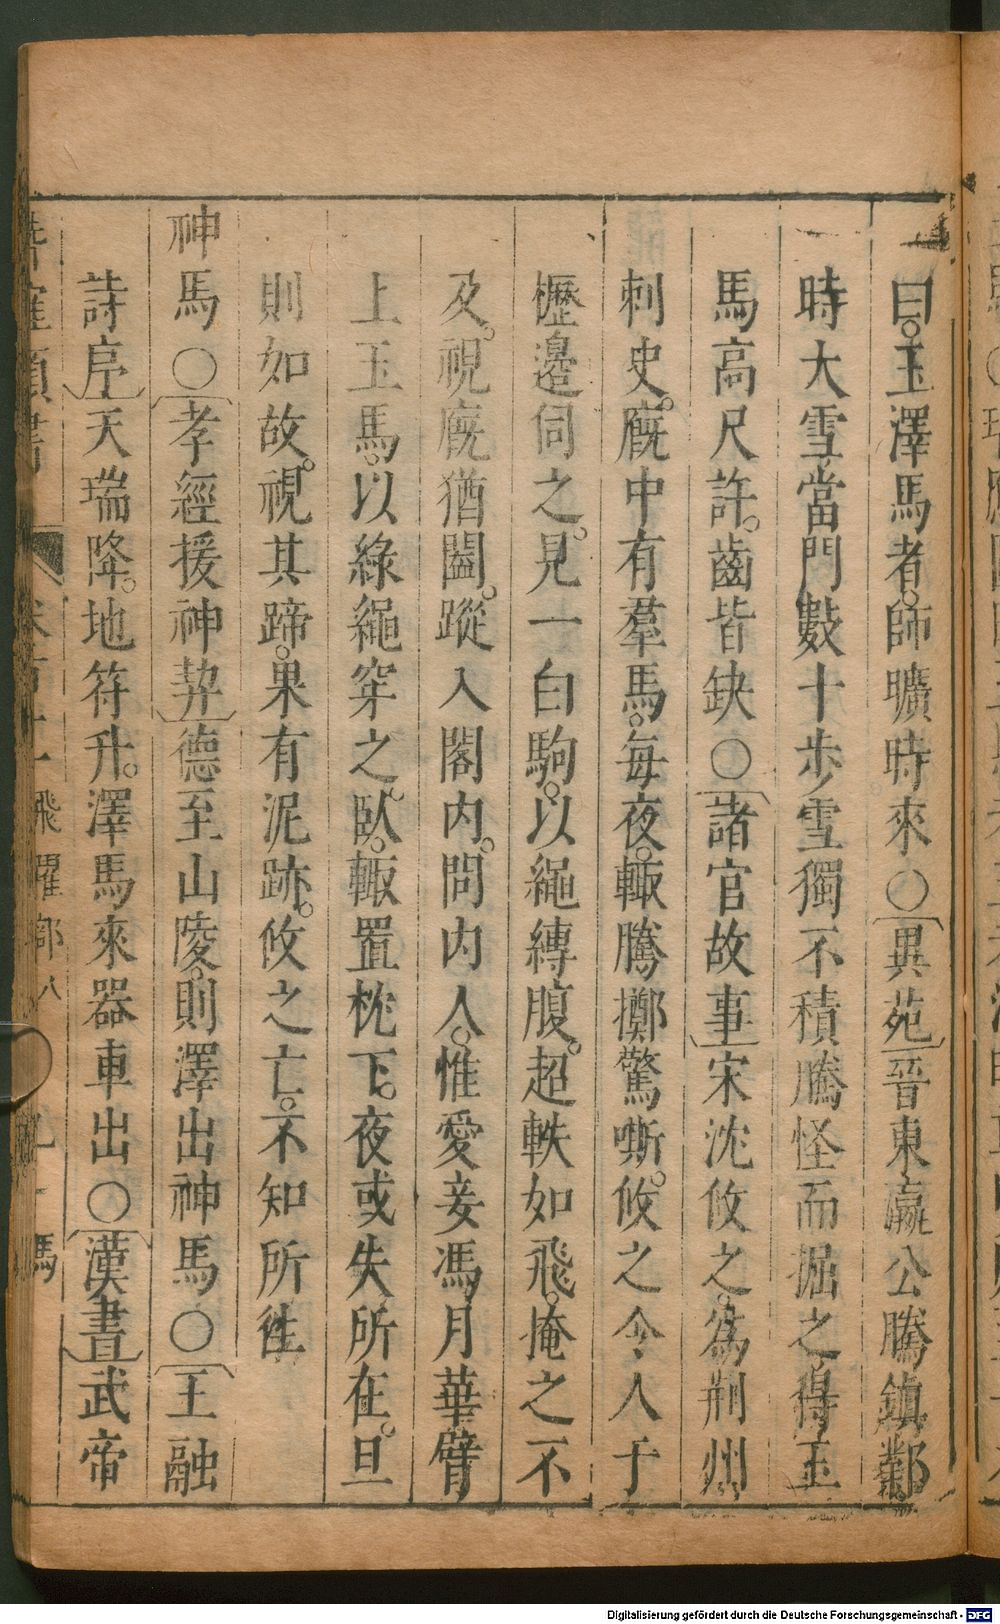 曰。玉澤馬者。師曠時來〇異苑晉東瀛公騰鎮鄴
時大雪當門數十步雪獨不積騰怪而掘之得玉
馬高尺許。齒皆缺〇諸宮故事宋沈攸之。為荆州
刺史。廐中有羣馬。每夜。輙騰擲驚嘶。攸之令人于
櫪邉伺之。見一白駒。以繩縛腹。超軼如飛。掩之不
及。視廐猶闔。蹤入閤内。問内人。惟愛妾馮月華臂
上玉馬。以綠繩穿之。臥。輙置枕下。夜或失所在。旦
則如故。視其蹄。果有泥跡。攸之亡。不知所徃
神馬〇孝經援神契德至山陵。則澤出神馬〇王融
詩序天瑞降。地符升。澤馬來器車出〇漢書武帝
飛躍部八
馬
Digitalisierung gefördert durch die Deutsche Forschungsgemeinschaft - DFG